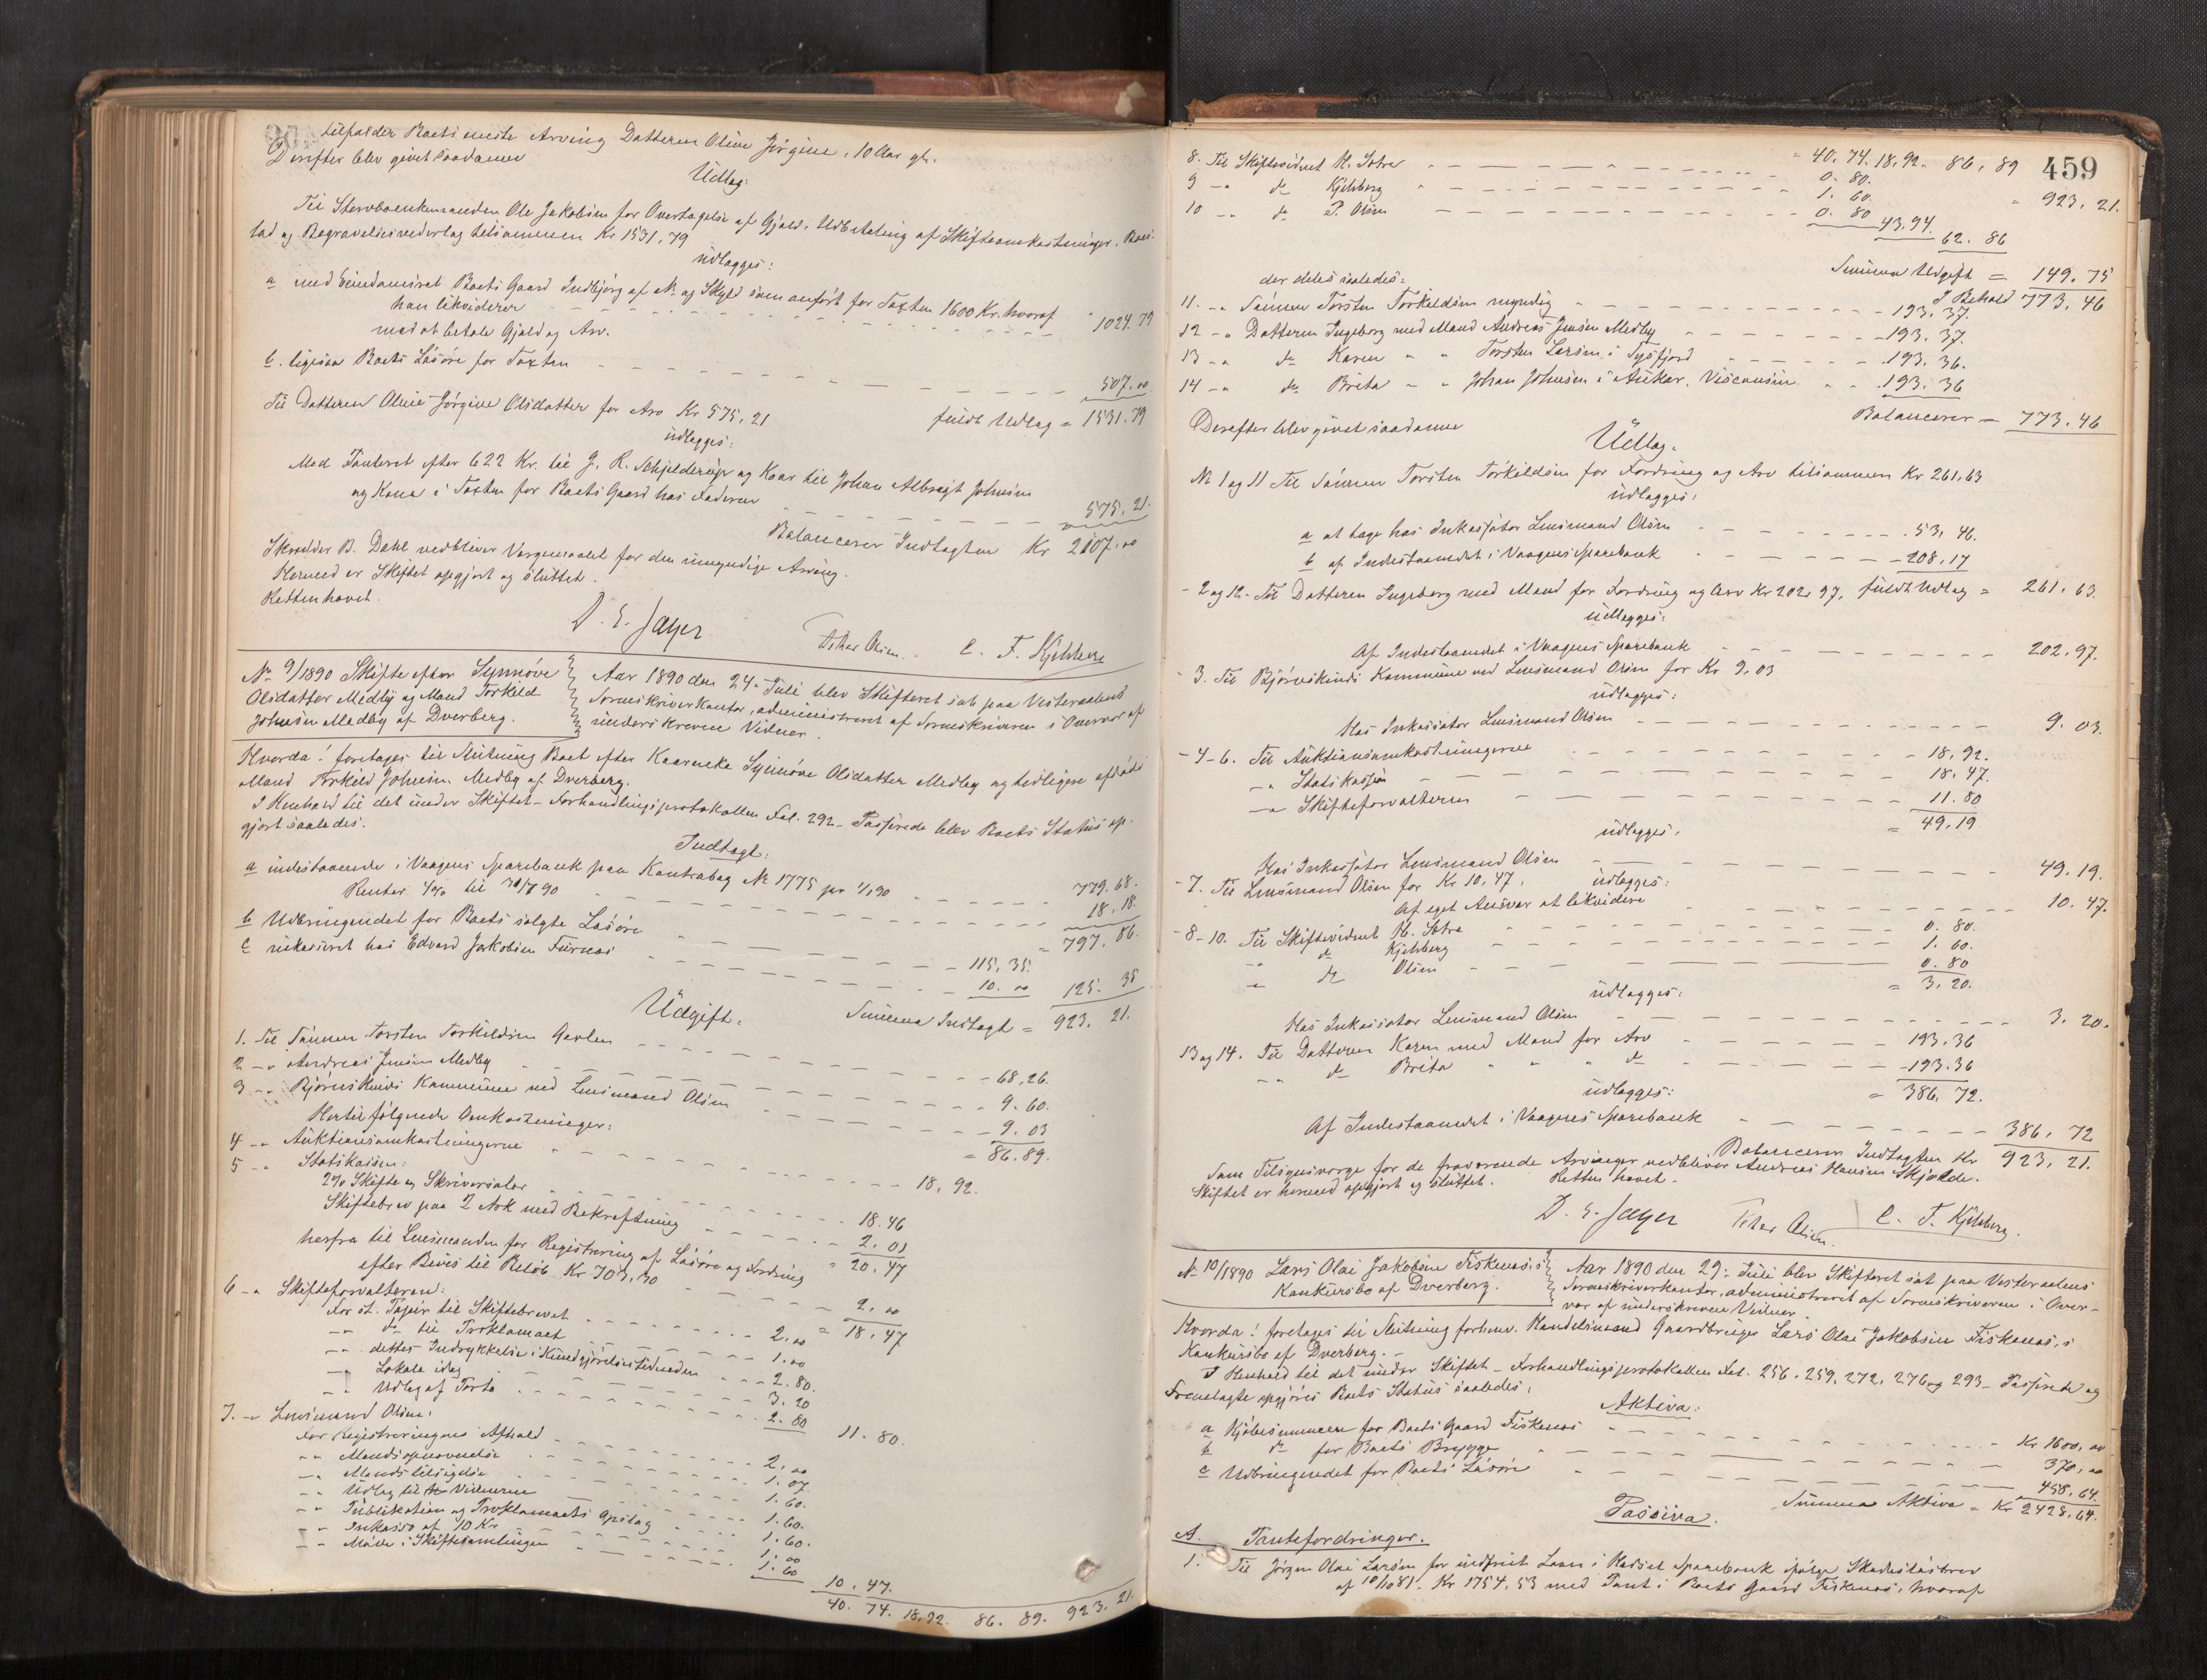 tilfalder Boets eneste Arving Datteren Oline Jørgine, 10 Aar gl.
Derefter blev givet saadanne
Udlag:
Til Stervboenkemanden Ole Jakobsen for Overtagelse af Gjæld, Udbetaling af Skifteomkostninger, Boes-
lod og Begravelsesvederlag tilsammen Kr 1531,79
udlægges:
a med Eiendomsret Boets Gaard Indbjørg af Nr og Skyld som anført for Taxten 1600 Kr. hvoraf
han likviderer 1024.79
mod at betale Gjæld og Arv.
b. ligesaa Boets Løsøre for Taxten 507.00
fuldt Udlag = 1531.79
Til Datteren Oline Jørgine Olsdatter for Arv Kr 575,21
udlægges:
Med Panteret efter 622 Kr. til J. R. Schjelderup og Kaar til Johan Albregt Johnsen
og Kona i Taxten for Boets Gaard hos Faderen 575.21.
Balancerer Indtægten Kr 2107.00
Skrædder B. Dahl vedbliver Værgemaalet for den umyndige Arving.
Hermed er Skiftet opgjort og sluttet.
Retten hævet.
D. E. Jayer Peter Olsen. C. F. Kjelsberg
No 9/1890 Skifte efter Synnøve
Olsdatter Medby og Mand Torkild
Johnsen Medby af Dverberg.
Aar 1890 den 24. Juli blev Skifteret sat paa Vesteraalens
Sorenskriverkontor, administreret af Sorenskriveren i Overvær af
underskrevne Vidner.
Hvorda! foretoges til Slutning Boet efter Kaarenke Synnøve Olsdatter Medby og tidligere afdøde
Mand Torkild Johnsen Medby af Dverberg.
I Henhold til det under Skiftet - Forhandlingsprotokollen Fol. 292 - Passerede blev Boets Status op-
gjort saaledes.
Indtægt:
a indestaaende i Vaagens Sparebank paa Kontrabog No 1775 pr 1/1 90 779.68.
Renter 4% til 31/7 90 18.18.
= 797.86.
b Udbringendet for Boets solgte Løsøre 115,35.
c inkasseret hos Edvard Jakobsen Furnæs 10.00 125.35
Summa Indtægt = 923.21.
Udgift:
1. Til Sønnen Torsten Torkildsen Gavlen 68,26.
2 -" Andreas Jensen Medby 9.60.
3 -" Bjørnskinds Kommune ved Lensmand Olsen 9.03
= 86.89.
Hertil følgende Omkostninger:
4 -" Auktionsomkostningerne 18,92.
5 -" Statskassen:
2% Skifte og Skriversalær 18.46
Skiftebrev paa 2 Ark med Bekræftning 2.01
= 20.47
herfra til Lensmanden for Registrering af Løsøre og Fordring
efter Bevis til Beløb Kr 703,70 2.00
= 18.47
6 -" Skifteforvalteren:
For st. Papir til Skiftebrevet 2.00
-" do til Proklamaet 1.00
-" dettes Indrykkelse i Kundgjørelsestidenden 2.80.
-" Lokale idag 3.20
-" Udlæg af Porto 2.80
11.80.
7. -" Lensmand Olsen:
For Registreringens Afhold 2.00
-" Mandsopnævnelse 1.07.
-" Mands tilsigelse 1.60.
-" Udlæg til Vidnerne 1.60.
-" Publikation og Proklamaets Opslag 1.60.
-" Inkasso af 10 Kr 1.00
-" Møde i Skiftesamlingen 1.60
10.47.
40.74. 18,92. 86.89. 923.21.
459
40.74. 18,92. 86,89 923,21.
8. Til Skiftevidnet H. Sotre 0.80.
9 -" do Kjelsberg 1.60.
10 -" do P. Olsen 0.80
43.94.
62.86
Summa Udgift = 149.75
I Behold 773.46
der deles saaledes:
11. -" Sønnen Torsten Torkildsen myndig 193.37.
12 -" Datteren Ingeborg med Mand Andreas Jensen Medby 193.37.
13 -" do Karen " " Torsten Larsen i Tysfjord 193.36.
14 -" do Brita " " Johan Johnsen i Amkær. Visconsin 193.36
Balancerer = 773.46
Derefter blev givet saadanne
Udlag.
No 1 og 11 Til Sønnen Torsten Torkildsen for Fordring og Arv tilsammen Kr 261.63
udlægges:
a at tage hos Inkassator Lensmand Olsen 53,46.
b af Indestaaendet i Vaagens Sparebank 208.17
fuldt Udlag = 261.63.
- 2 og 12. Til Datteren Ingeborg med Mand for Fordring og Arv Kr 202,97.
udlægges:
Af Indestaaendet i Vaagens Sparebank 202.97.
- 3. Til Bjørnskinds Kommune ved Lensmand Olsen for Kr 9,03
udlægges:
Hos Inkassator Lensmand Olsen 9.03.
- 4-6. Til Auktionsomkostningerne 18,92.
-" Statskassen 18.47.
-" Skifteforvalteren 11.80
= 49.19
udlægges:
Hos Inkassator Lensmand Olsen 49.19.
- 7. Til Lensmand Olsen for Kr 10,47.
udlægges:
Af eget Ansvar at likvidere 10.47.
- 8-10. Til Skiftevidnet H. Sotre 0.80.
-" do Kjelsberg 1.60.
-" do Olsen 0.80
= 3.20.
udlægges:
Hos Inkassator Lensmand Olsen 3.20.
13 og 14. Til Datteren Karen med Mand for Arv 193.36
-" do Brita " " " do 193.36
= 386,72.
udlægges:
Af Indestaaendet i Vaagens Sparebank 386,72
Balancerer Indtægten Kr 923,21.
Som Tilsynsværge for de fraværende Arvinger vedbliver Andreas Hansen Skjolde.
Skiftet er hermed opgjort og sluttet. Retten hævet.
D. E. Jayer Peter Olsen. C. F. Kjelsberg.
No 10/1890 Lars Olai Jakobsen Fiskenæs,s
Konkursbo af Dverberg.
Aar 1890 den 29. Juli blev Skifteret sat paa Vesteraalens
Sorenskriverkontor, administreret af Sorenskriveren i Over-
vær af underskrevne Vidner
Hvorda! foretoges til Slutning forhenv. Handelsmand Gaardbruger Lars Olai Jakobsen Fiskenæs,s
Konkursbo af Dverberg. -
I Henhold til det under Skiftet - Forhandlingsprotokollen Fol. 256, 259, 272, 276 og 293 - Passerede og
Fremlagte opgjøres Boets Status saaledes,
Aktiva:
a Kjøbesummen for Boets Gaard Fiskenæs Kr 1600,00
b do for Boets Brygge 370,00
c Udbringendet for Boets Løsøre 458,64.
Summa Aktiva = Kr 2428,64.
Passiva.
A. Pantefordringer.
1. Til Jørgen Olai Larsen for indfriet Laan i Hadsel Sparebank ifølge Skadesløsbrev
af 10/10 81. Kr 1754,53 med Pant i Boets Gaard Fiskenæs, hvoraf